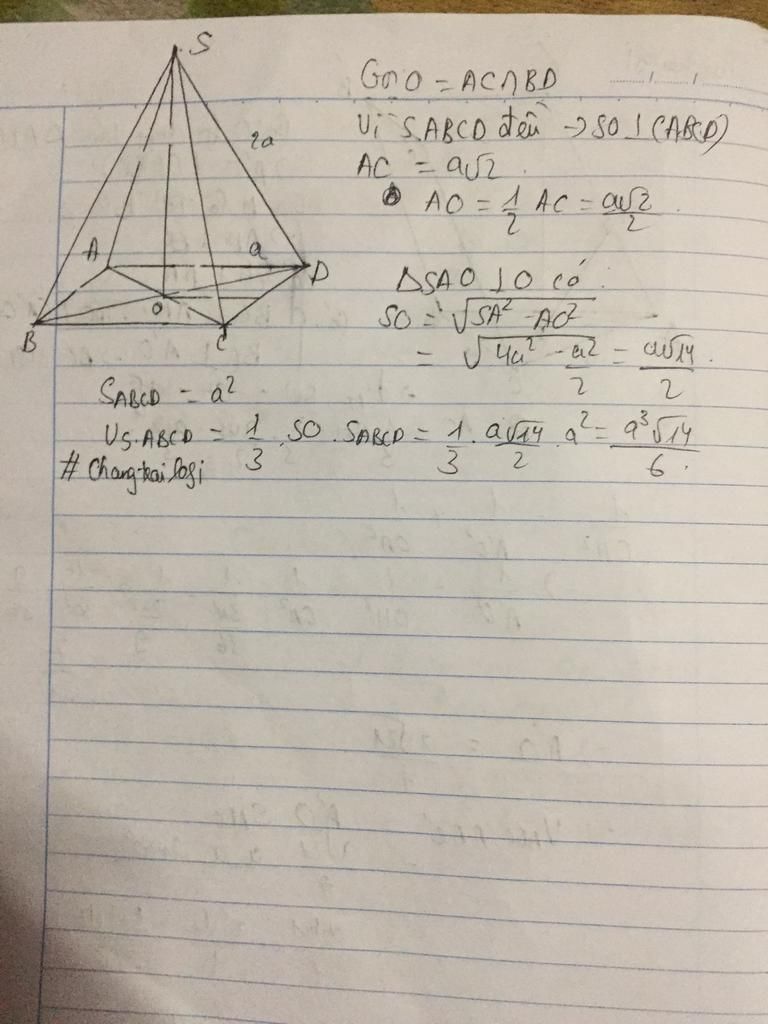 S
2a
A
a
D
O
B
C
Gọi O = AC ∩ BD
Vì S.ABCD đều → SO ⊥ (ABCD)
AC = a√2
AO = 1/2 AC = a√2/2.
ΔSAO ⊥ O có:
SO = √(SA² - AO²)
= √(4a² - a²/2) = a√14/2.
SABCD = a²
VS.ABCD = 1/3 . SO . SABCD = 1/3 . a√14/2 . a² = a³√14/6.